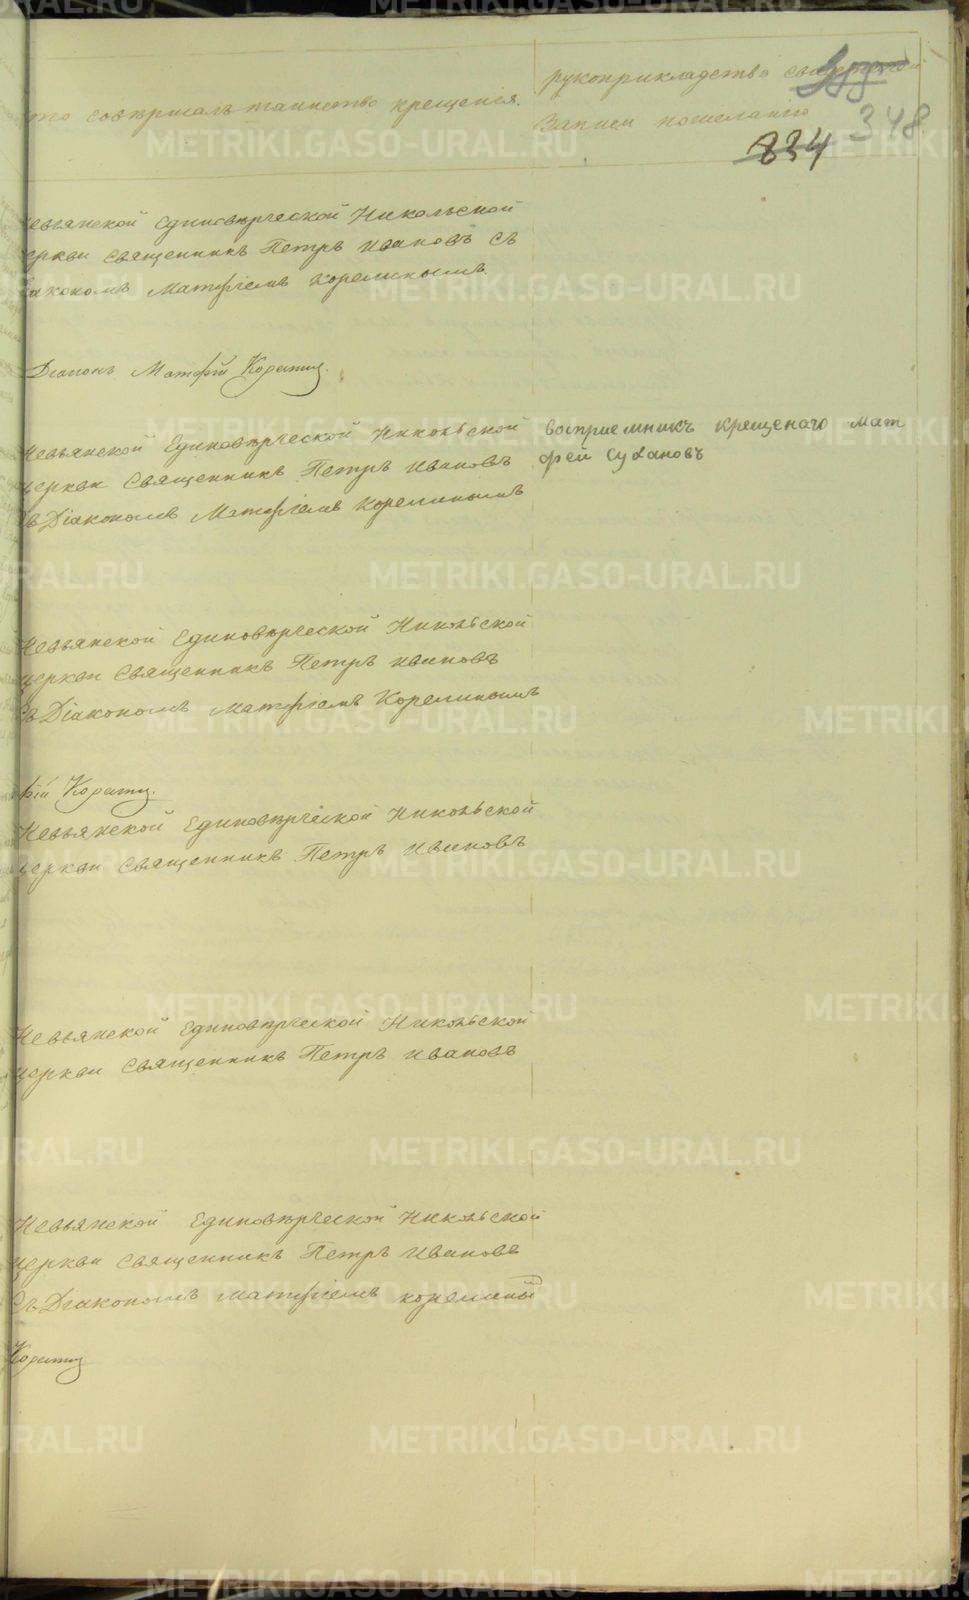 то совершалъ таинство крещенія.
рукоприкладство
записи пожеланію
834
348
евьянской Единоверческой Никольской
еркви священникъ Петръ Ивановъ съ
іакономъ Матфіемъ Корелинымъ.
Діаконъ Матфій Корелинъ.
Невьянской Единоверческой Никольской
церкви Священникъ Петръ Ивановъ
съ Діакономъ Матфіемъ Корелинымъ
восприемникъ крещенаго мат
фей Сухановъ
Невьянской Единоверческой Никольской
церкви Священникъ Петръ Ивановъ
съ Діакономъ Матфіемъ Корелинымъ
фій Корелинъ.
Невьянской Единоверческой Никольской
церкви Священникъ Петръ Ивановъ
Невьянской Единоверческой Никольской
церкви Священникъ Петръ Ивановъ
Невьянской Единоверческой Никольской
церкви Священникъ Петръ Ивановъ
Съ Діакономъ Матфіемъ корелины
Корелинъ
METRIKI.GASO-URAL.RU